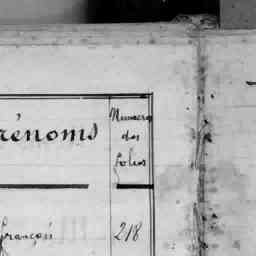 rénoms
Numéros
des
folios
françois 218